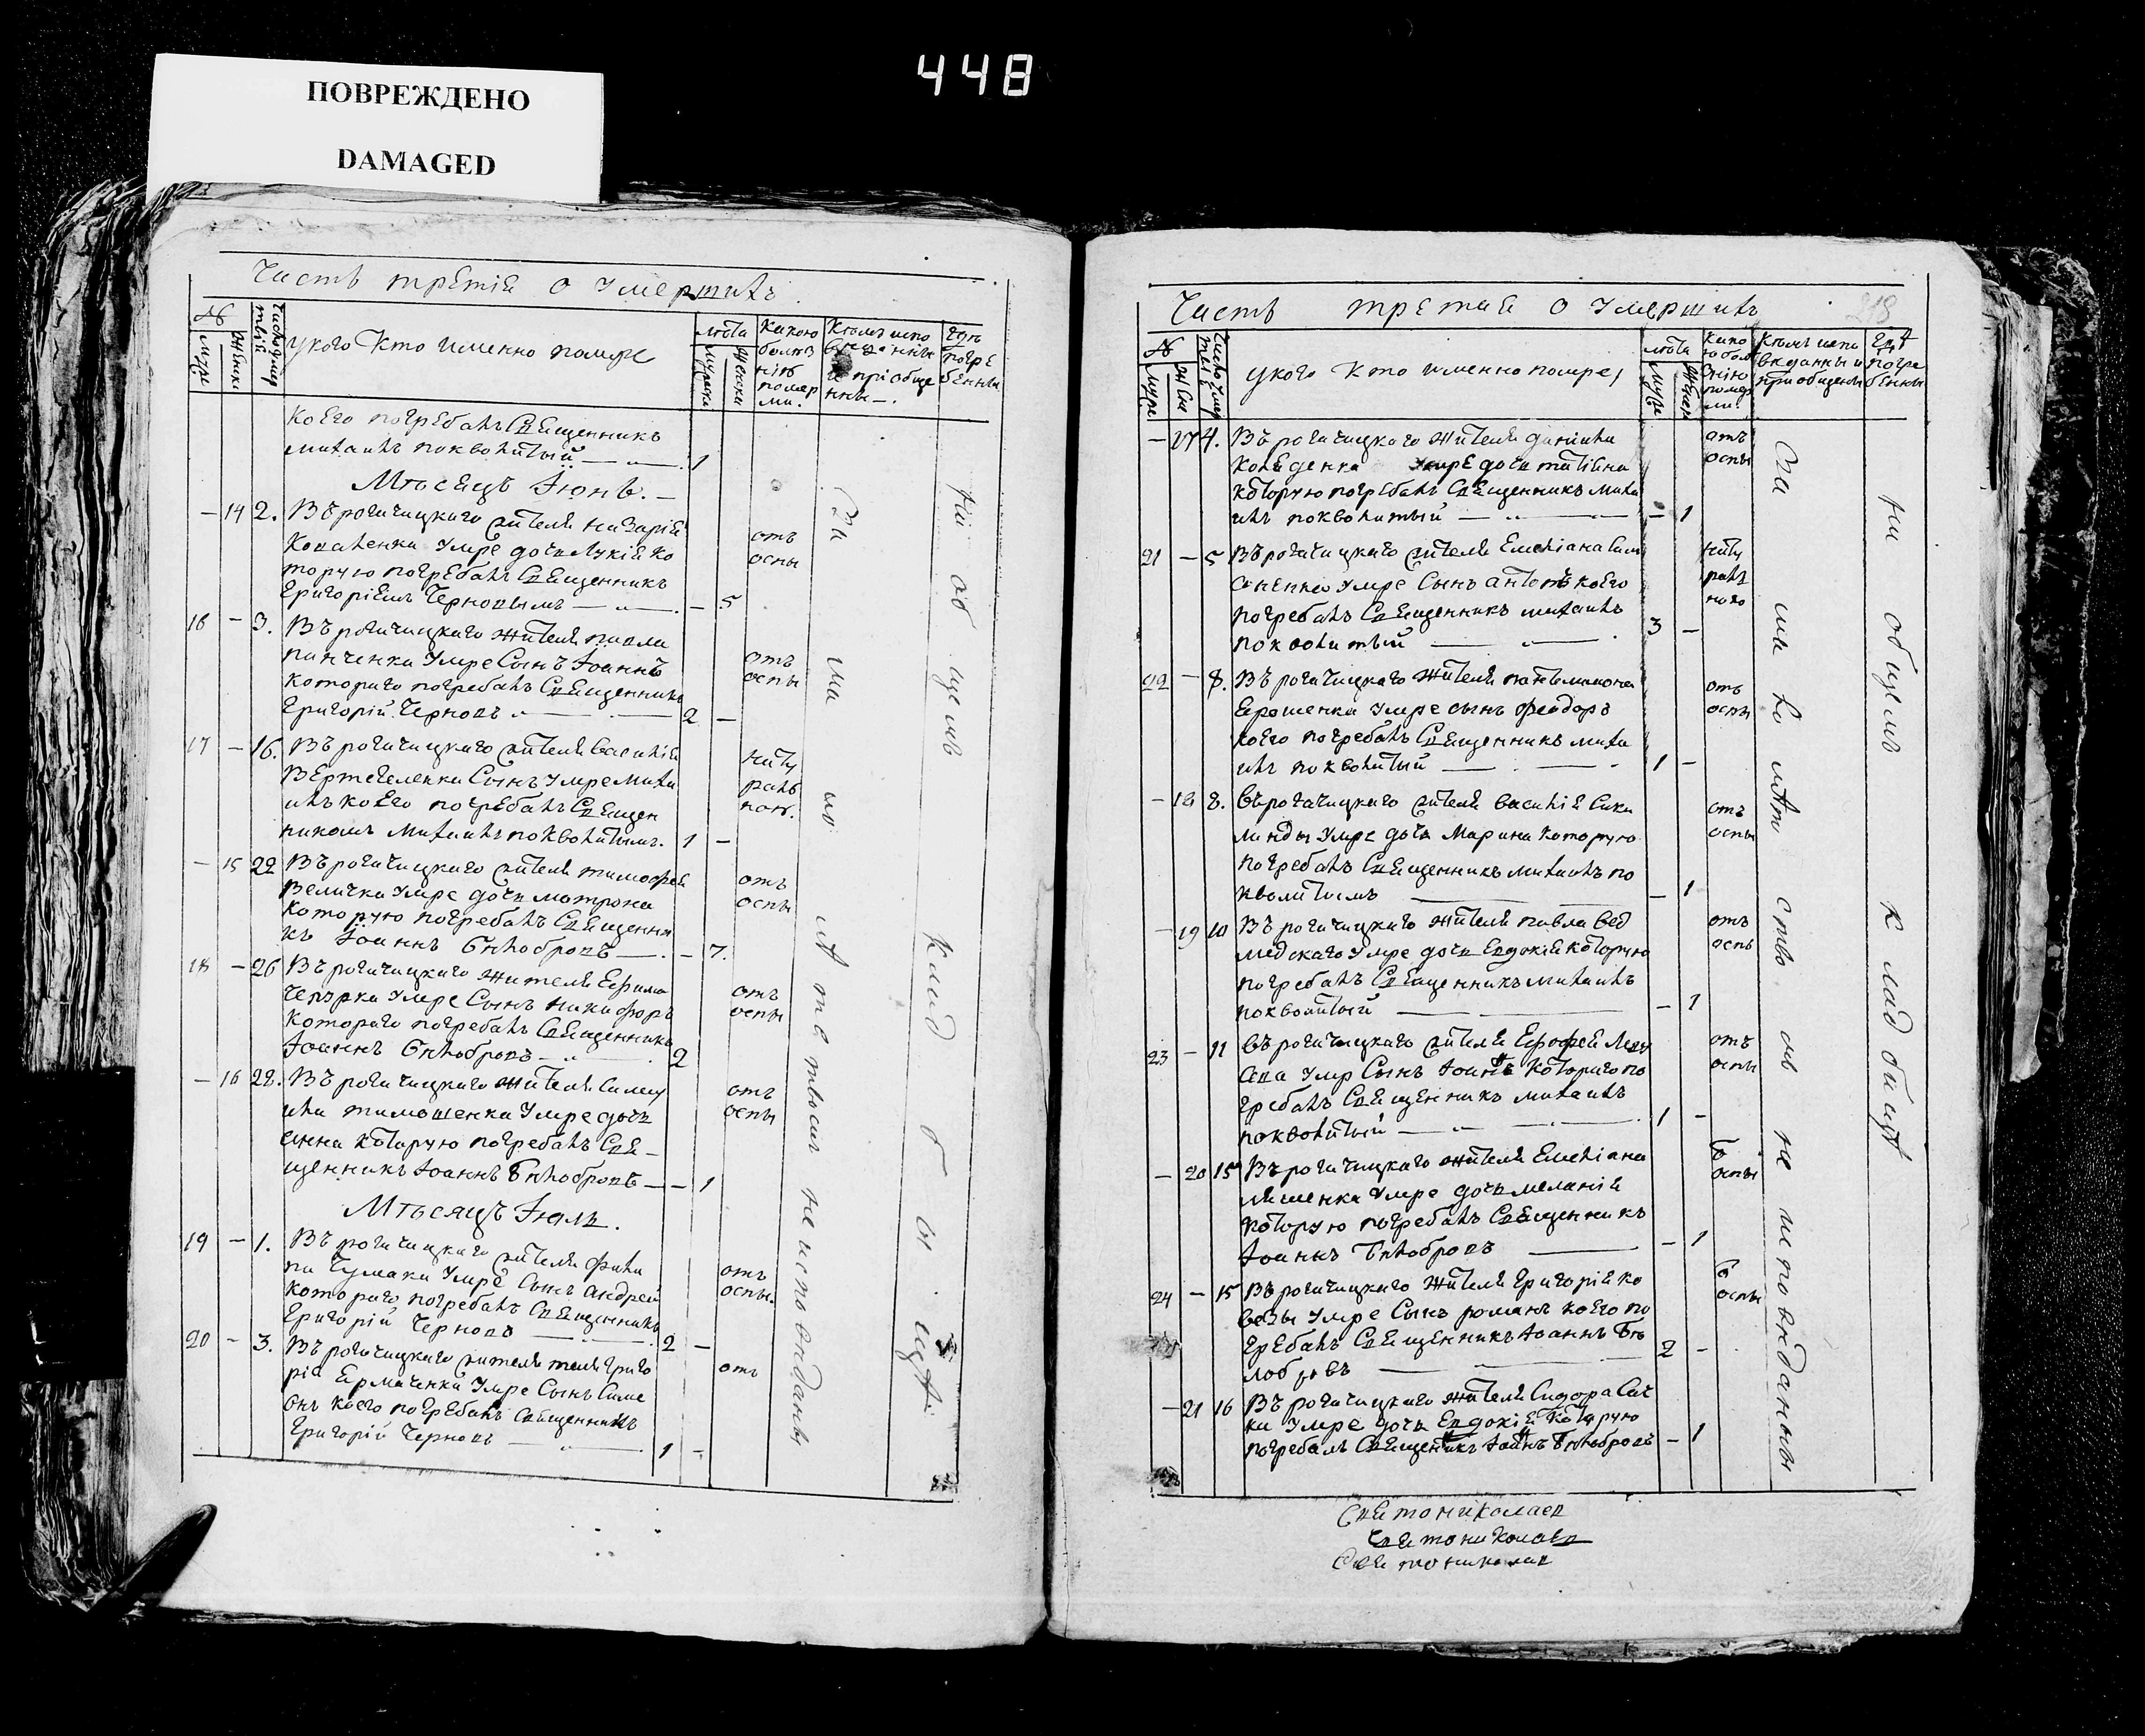 448
ПОВРЕЖДЕНО
DAMAGED
Часть третія о умершихъ
№
муже
женски
у кого кто именно помре
лѣта
мужески
женски
какою
болѣз
нію
помер
ли.
и пріобще
ны —.
погре
бенны
коего погребалъ Священникъ
михаилъ покволитый — 1
Мѣсяцъ Іюнь. —
— 14 2. Въ рогачицкаго жителя назарія
коваленка умре дочь Лукія ко
торую погребалъ Священникъ
григоріемъ Черновымъ — — 5
отъ
оспы
16 — 3. Въ рогачицкаго жителя павла
панченка умре Сынъ Іоаннъ
котораго погребалъ Священникъ
григорій Черновъ — 2 —
отъ
оспы
17 — 16. Въ рогачицкаго жителя василія
Сынъ умре миха
илъ коего погребалъ Священ
никомъ михаилъ покволитымъ. 1 —
нату
раль
ною.
— 15 22 Въ рогачицкаго жителя тимофея
величка умре дочь мотрона
которую погребалъ Священни
къ Іоаннъ Бѣлобровъ — — 7.
отъ
оспы
18 — 26 Въ рогачицкаго жителя Ефима
умре Сынъ никифоръ
котораго погребалъ Священникъ
Іоаннъ Бѣлобровъ — 2
отъ
оспы
— 16 28. Въ рогачицкаго жителя Саму
ила тимошенка умре дочь
анна которую погребалъ Свя —
щенникъ Іоаннъ Бѣлобровъ — — 1
отъ
оспы
Мѣсяцъ Іюль.
19 — 1. Въ рогачицкаго жителя фили
па Чумака умре Сынъ андрей
котораго погребалъ Священникъ
григорій Черновъ — 2 —
отъ
оспы.
20 — 3. Въ рогачицкаго жителя теля григо
рія Ермаченка умре Сынъ Симе
онъ коего погребалъ Священникъ
григорій Черновъ — 1 —
отъ
за малолѣтствомъ не исповѣданы
на общемъ кладбищѣ
Часть третая о умершихъ
№
муже
жен
у кого кто именно помре,
лѣта
муже
женс
како
ю бол
ѣзнію
помер
ли.
кѣмъ испо
вѣданы и
пріобщены
гдѣ
погре
бенны
— 17 4. Въ рогачицкаго жителя даніила
умре дочь татіана
которую погребалъ Священникъ миха
илъ покволитый — — 1
отъ
оспы
21 — 5 Въ рогачицкаго жителя Емеліана Сим
оненка умре Сынъ антонъ коего
погребалъ Священникъ михаилъ
покволитый — 3 —
нату
рал
ного
22 — 8. Въ рогачицкаго жителя пантелимона
Ерошенка умре сынъ феодоръ
коего погребалъ Священникъ миха
илъ покволитый — 1 —
отъ
оспы
— 18 8. въ рогачицкаго жителя василія Сала
манды умре дочь Марина которую
погребалъ Священникъ михаилъ по
кволитымъ — — 1
отъ
оспы
— 19 10 Въ рогачицкаго жителя павла вед
медскаго умре дочь Евдокія которую
погребалъ Священникъ михаилъ
покволитый — — 1
отъ
оспы
23 — 11 въ рогачицкаго жителя Ерофея
умр Сынъ Іоанъ котораго по
гребалъ Священникъ михаилъ
покволитый — 1 —
отъ
оспы
— 20 15 Въ рогачицкаго жителя Емеліана
ляшенка умре дочь меланія
которую погребалъ Священникъ
Іоаннъ Бѣлобровъ — — 1
оспы
24 — 15 Въ рогачицкаго жителя григорія ко
умре Сынъ романъ коего по
гребалъ Священникъ Іоаннъ Бѣ
лобровъ — 2 —
оспы
— 21 16 Въ рогачицкаго жителя Сидора Сач
ка умре дочь Евдокія которую
погребалъ Священникъ Іоанъ Бѣлобровъ — 1
за малолѣтствомъ не исповѣданны
на общемъ кладбищѣ
Святониколаев
Святониколаев
Святониколаев